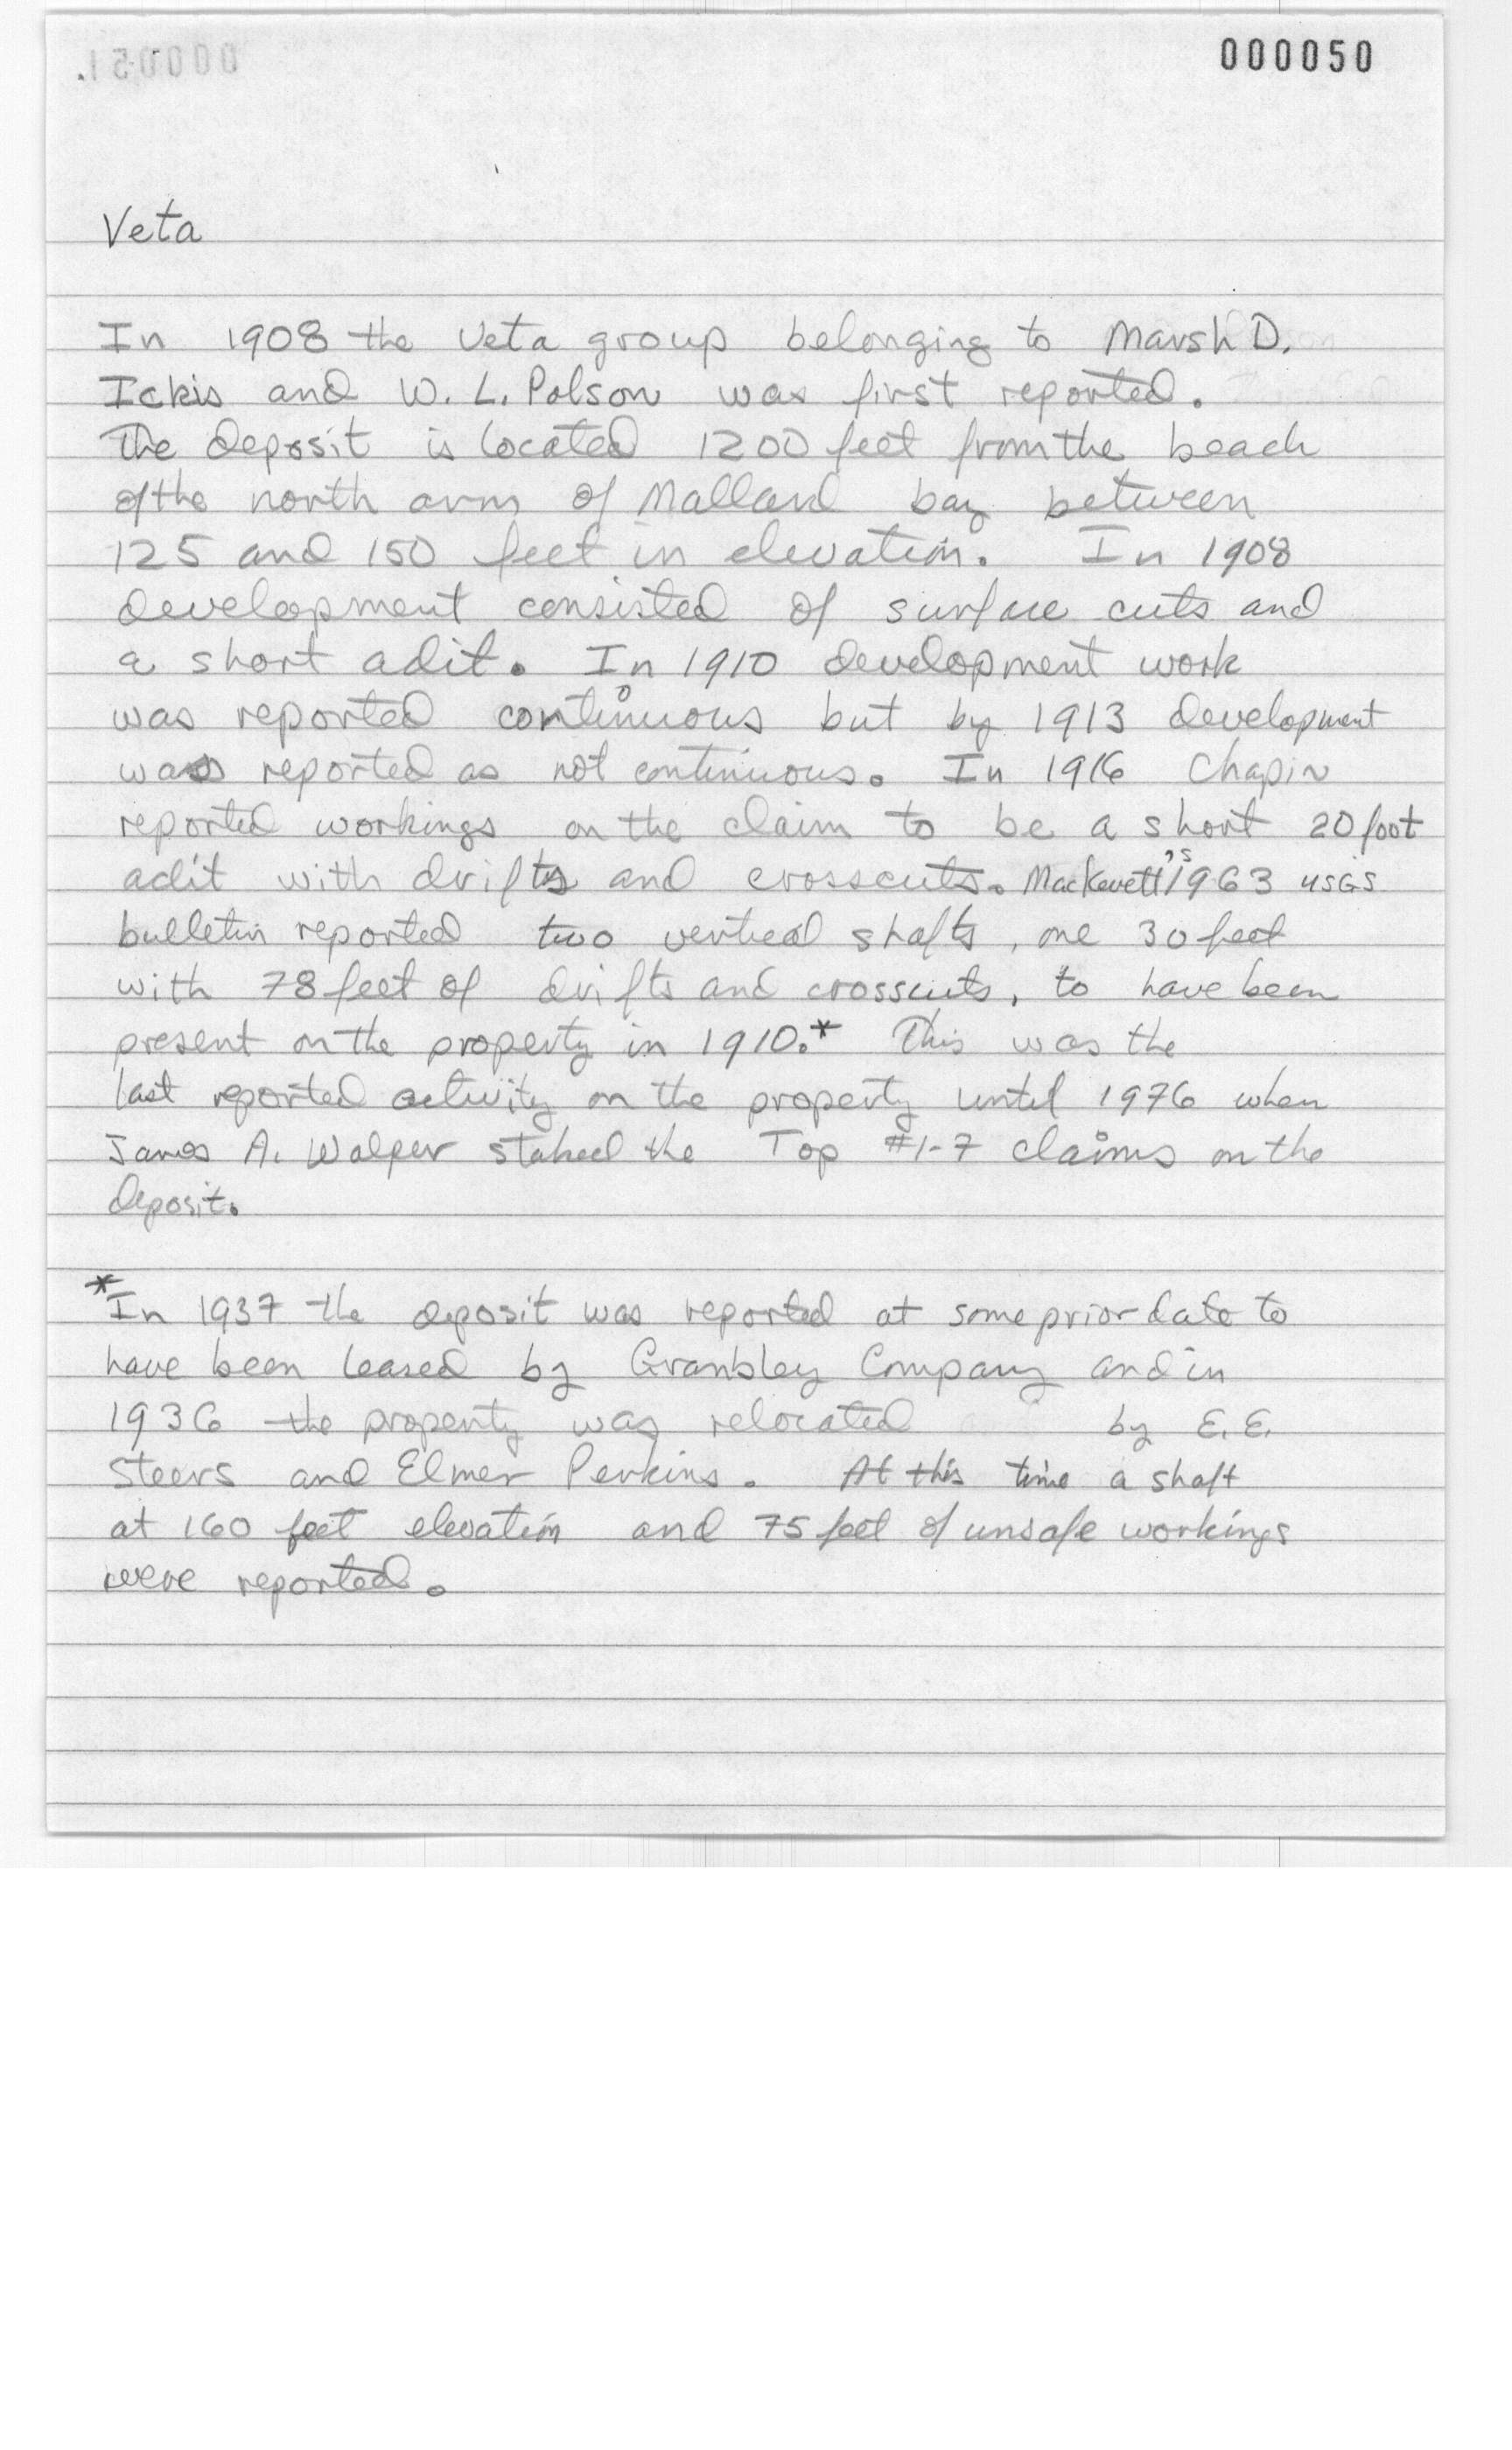 000050
Veta
In 1908 the Veta group belonging to Marsh D.
Ickis and W. L. Polson was first reported.
The deposit is located 1200 feet from the beach
of the north arm of Mallard bay between
125 and 150 feet in elevation. In 1908
development consisted of surface cuts and
a short adit. In 1910 development work
was reported continuous but by 1913 development
was reported as not continuous. In 1916 Chapin
reported workings on the claim to be a short 20 foot
adit with drifts and crosscuts. MacKevett's 1963 USGS
bulletin reported two vertical shafts, one 30 feet
with 78 feet of drifts and crosscuts, to have been
present on the property in 1910.* This was the
last reported activity on the property until 1976 when
James A. Walper staked the Top #1-7 claims on the
deposit.
*In 1937 the deposit was reported at some prior date to
have been leased by Granbley Company and in
1936 the property was relocated by E. E.
Steers and Elmer Perkins. At this time a shaft
at 160 feet elevation and 75 feet of unsafe workings
were reported.